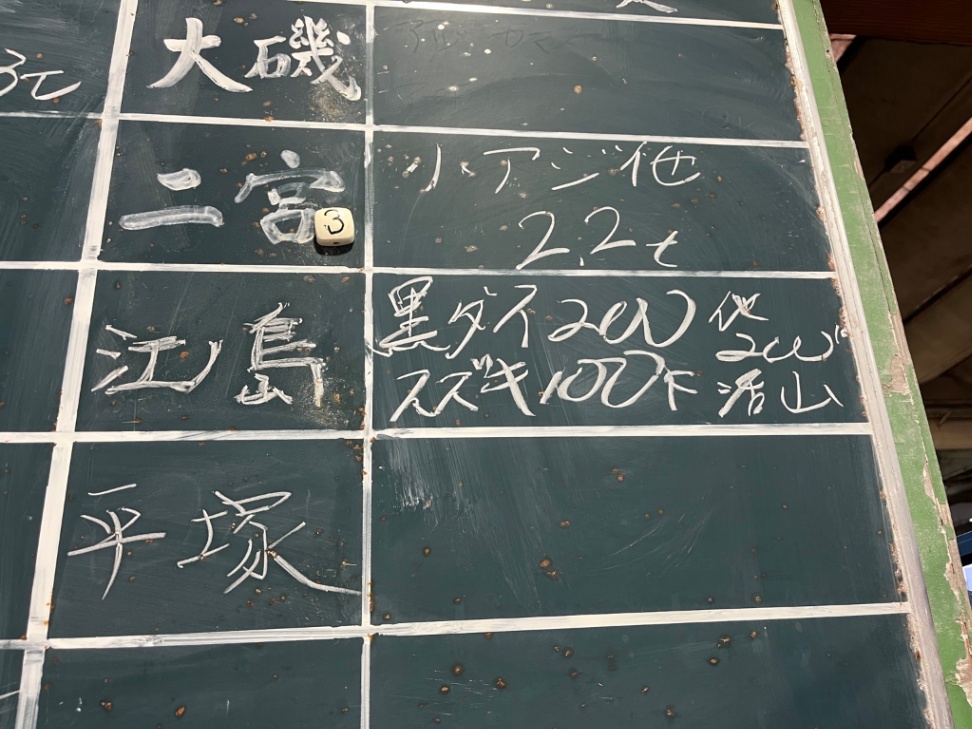 大磯
二宮
3
小アジ他
2.2t
江島
黒ダイ200 他
200
スズキ100下 活山
平塚